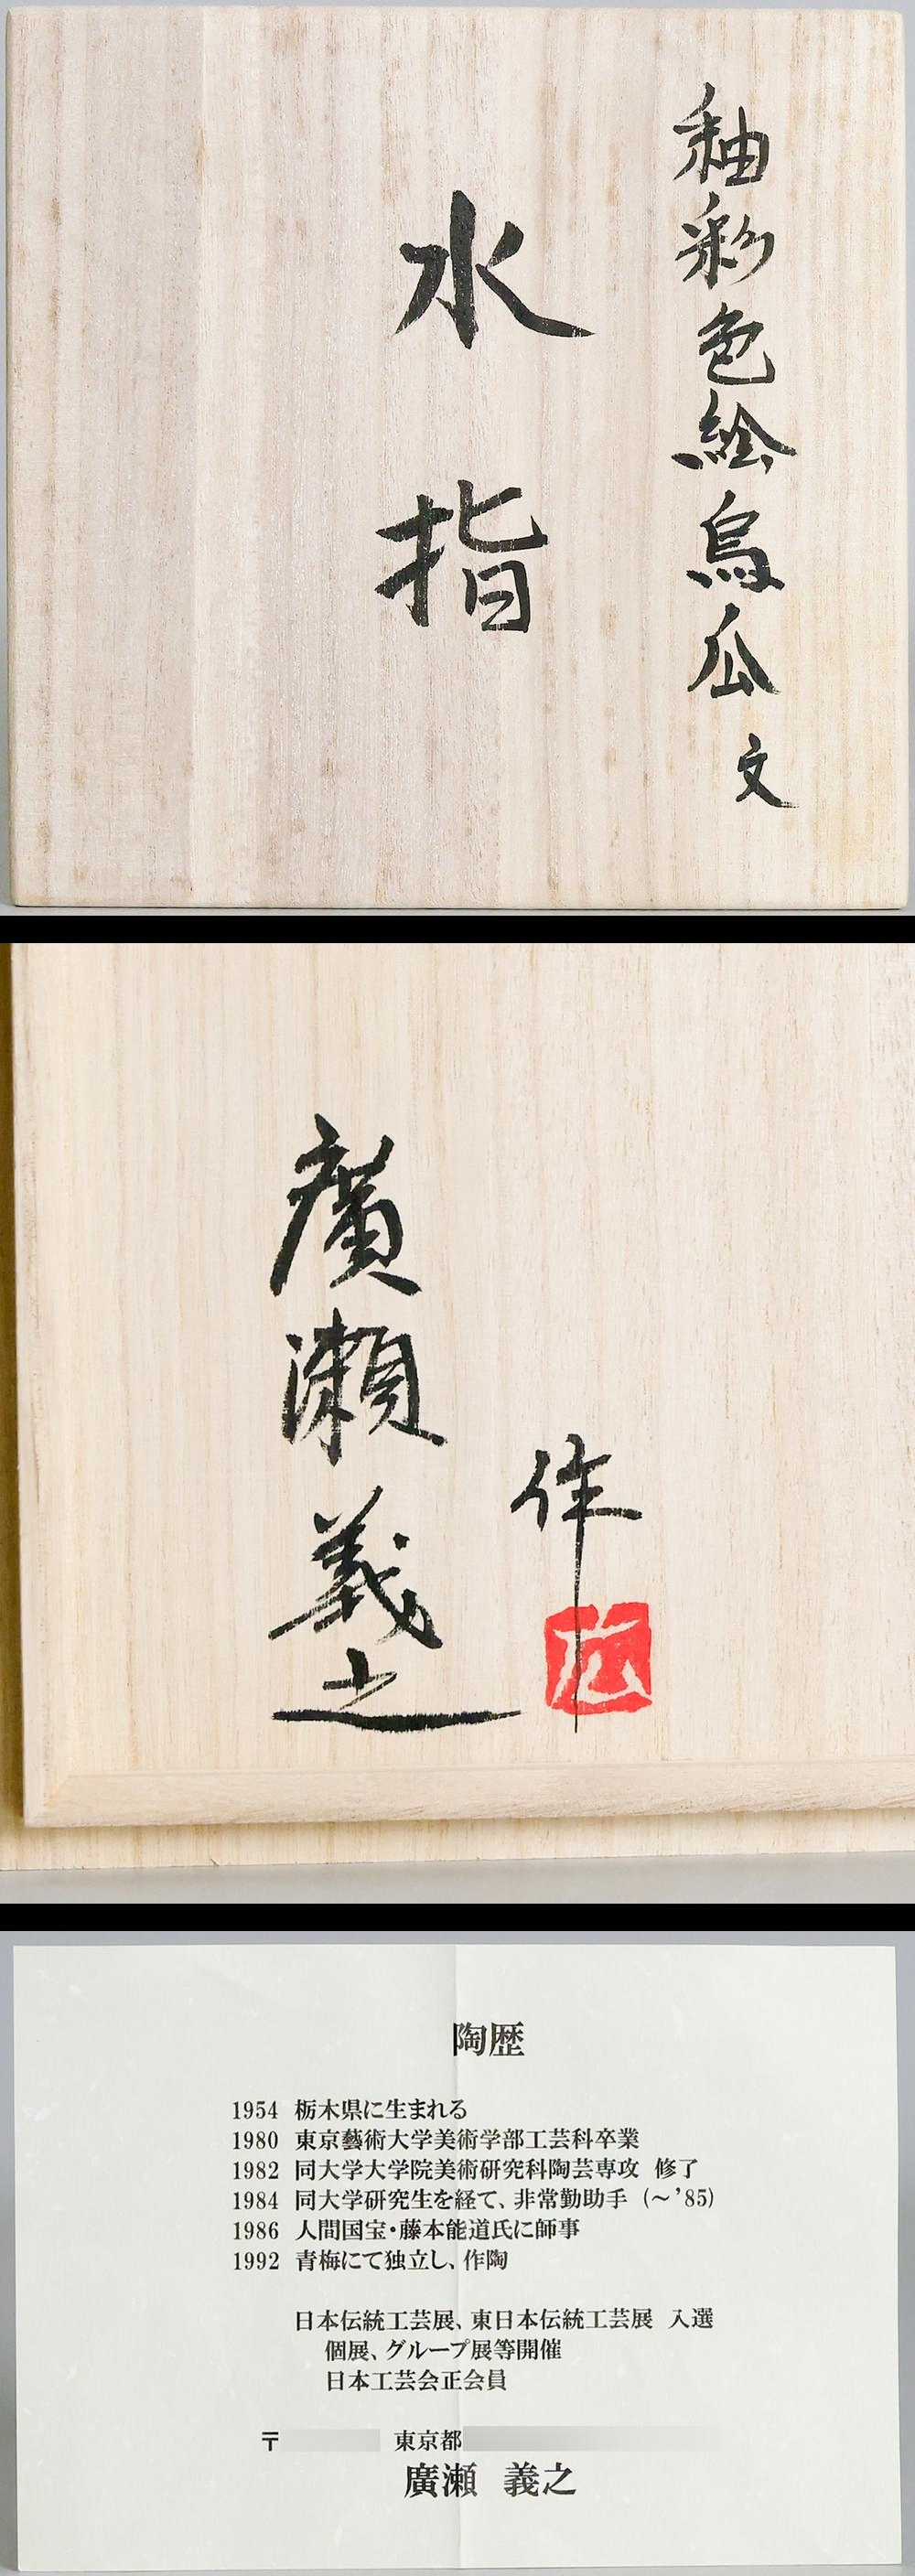 釉彩色絵烏瓜文
水指
作
広
廣瀬義之
陶歴
1954 栃木県に生まれる
1980 東京藝術大学美術学部工芸科卒業
1982 同大学大学院美術研究科陶芸専攻 修了
1984 同大学研究生を経て、非常勤助手 (〜'85)
1986 人間国宝・藤本能道氏に師事
1992 青梅にて独立し、作陶
日本伝統工芸展、東日本伝統工芸展 入選
個展、グループ展等開催
日本工芸会正会員
〒 東京都
廣瀬 義之